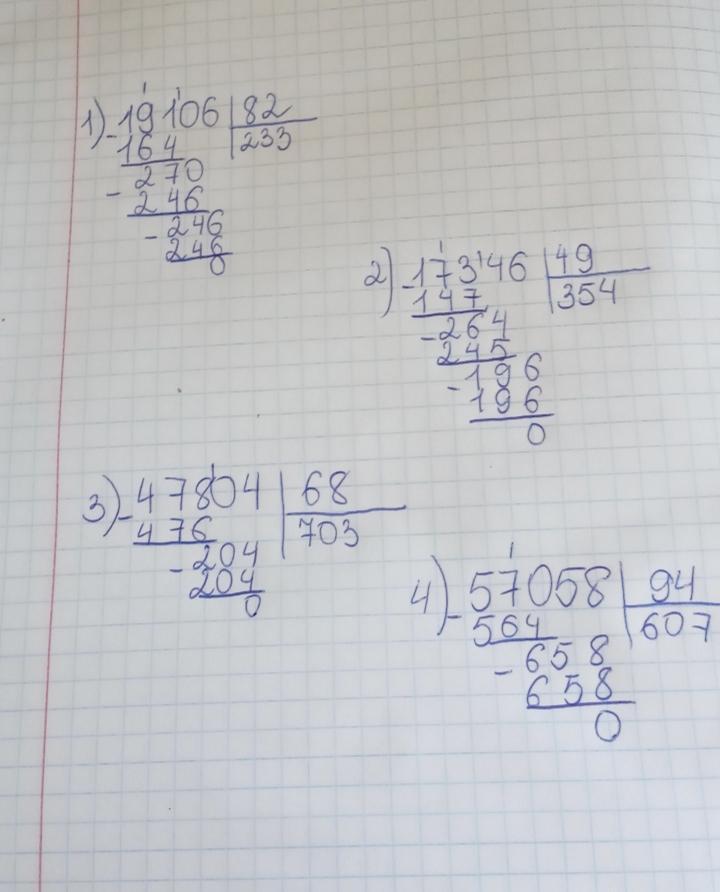 1) 19106 | 82
164 | 233
- 270
246
- 246
246
0
2) - 17346 | 49
147 | 354
- 264
245
- 196
196
0
3) - 47804 | 68
476 | 703
- 204
204
0
4) - 57058 | 94
564 | 607
- 658
658
0